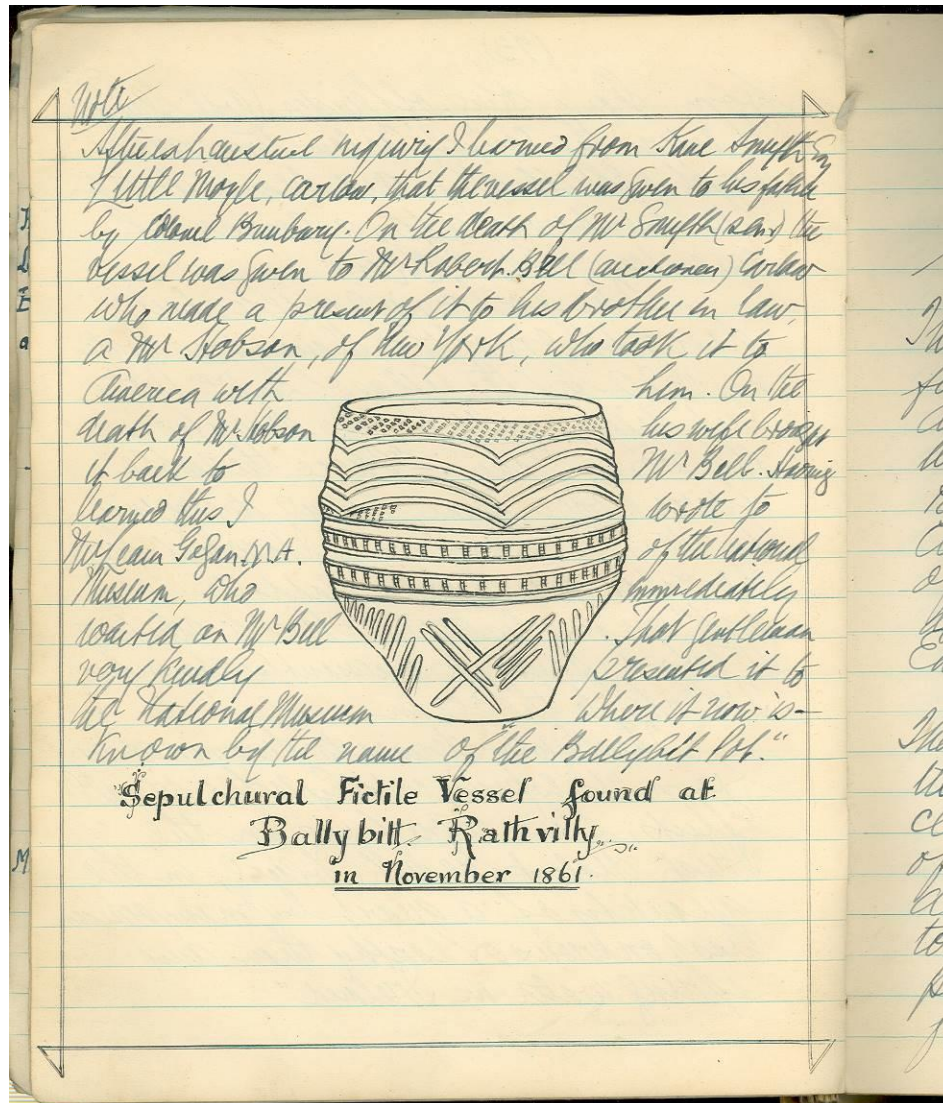 Note
After exhaustive inquiry I learned from Kane Smyth Esq
Little Moyle, Carlow, that the vessel was given to his father
by Colonel Bunbury. On the death of Mr Smyth (senr) the
vessel was given to Mr Robert Bell (auctioneer) Carlow
who made a present of it to his brother in law,
a Mr Hobson, of New York, who took it to
America with him. On the
death of Mr Hobson his wife brought
it back to Mr Bell. Having
learned this I wrote to
Mr Leam Gogan. M.A. of the national
Museum, who immediately
waited on Mr Bell. That gentleman
very kindly presented it to
the National Museum where it now is—
known by the name of "the Ballybit Pot."
Sepulchural Fictile Vessel found at
Ballybitt. Rathvilly
in November 1861.
M